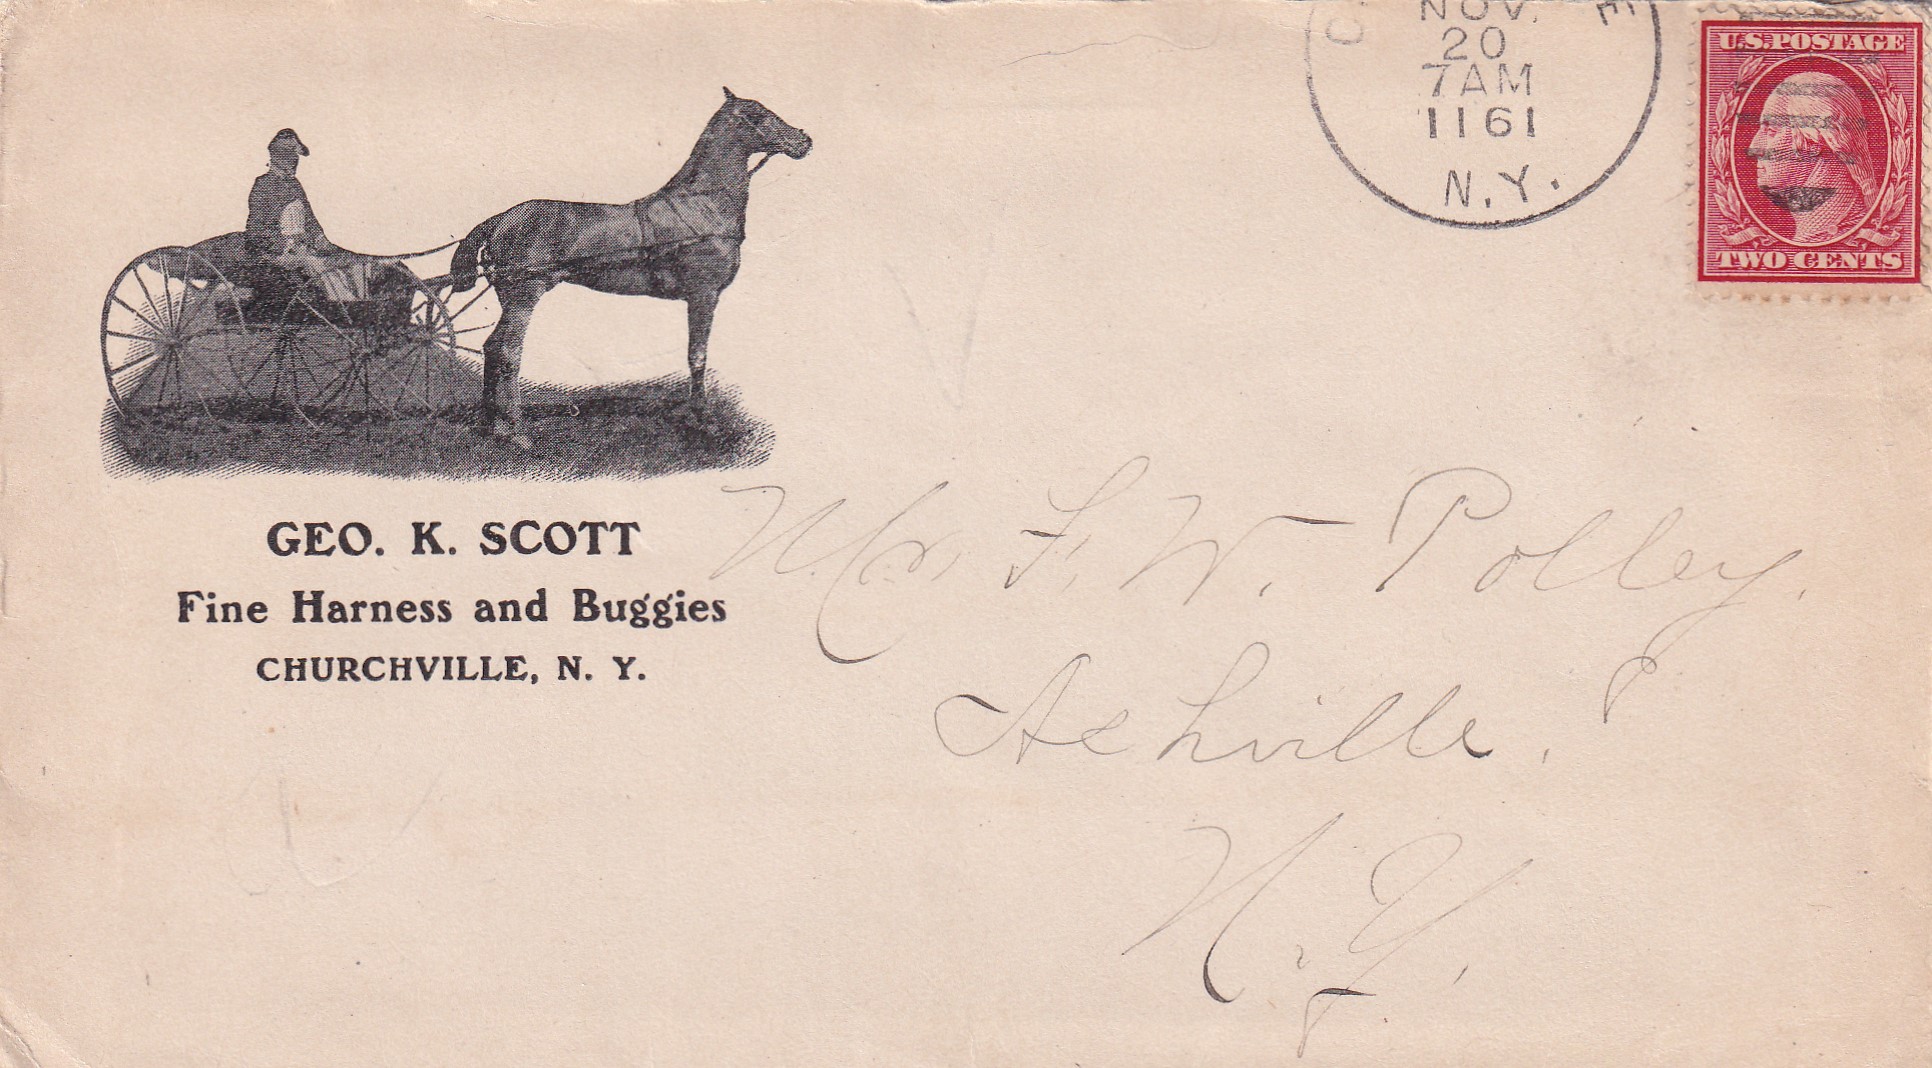 GEO. K. SCOTT
Fine Harness and Buggies
CHURCHVILLE, N. Y.
NOV.
20
7 AM
1161
N.Y.
U.S. POSTAGE
TWO CENTS
Mr. F. W. Polley,
Ashville,
N.Y.